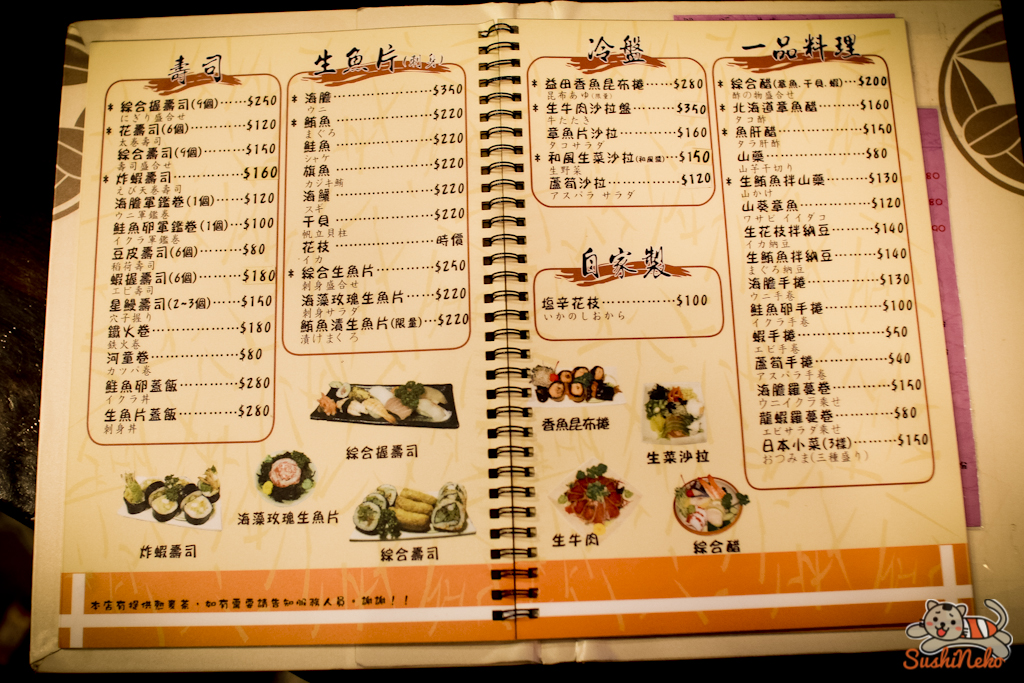 壽司
* 綜合握壽司(9個)……$250
にぎり盛合せ
* 花壽司(6個)…………$120
太巻壽司
綜合壽司(9個)…………$150
壽司盛合せ
* 炸蝦壽司……………$160
えび天巻壽司
海膽軍艦巻(1個)……$120
ウニ軍艦巻
鮭魚卵軍艦巻(1個)…$100
イクラ軍艦巻
豆皮壽司(6個)………$80
稲荷壽司
蝦握壽司(6個)………$180
エビ壽司
星鰻壽司(2~3個)……$150
穴子握り
鐵火巻………………$180
鉄火巻
河童巻………………$80
カツパ巻
鮭魚卵蓋飯…………$280
イクラ丼
生魚片蓋飯…………$280
刺身丼
生魚片
* 海膽…………………$350
ウニ
* 鮪魚…………………$220
まぐろ
鮭魚…………………$220
シャケ
旗魚…………………$220
カジキ鮪
海鱺…………………$220
スギ
干貝…………………$220
帆立貝柱
花枝…………………時價
イカ
* 綜合生魚片…………$250
刺身盛合せ
海藻玫瑰生魚片……$220
刺身サラダ
鮪魚漬生魚片(限量)…$220
漬けまぐろ
綜合握壽司
炸蝦壽司
海藻玫瑰生魚片
綜合壽司
本店有提供熱煎茶，如有需要請告知服務人員，謝謝！！
冷盤
* 益田香魚昆布捲……$280
昆布あゆ
* 生牛肉沙拉盤………$350
牛たたき
章魚片沙拉…………$160
タコサラダ
* 和風生菜沙拉(和風醬)…$150
生野菜
* 蘆筍沙拉……………$120
アスパラ サラダ
自家製
塩辛花枝……………$100
いかのしおから
香魚昆布捲
生菜沙拉
生牛肉
綜合醋
一品料理
* 綜合醋(章魚、干貝、蝦)……$200
酢の物盛合せ
* 北海道章魚醋………$160
タコ酢
* 魚肝醋………………$150
タラ肝酢
山藥…………………$80
山芋千切り
* 生鮪魚拌山藥………$130
山かけ
山葵章魚……………$120
ワサビ イイダコ
生花枝拌納豆………$140
イカ納豆
生鮪魚拌納豆………$140
まぐろ納豆
海膽手捲……………$130
ウニ手巻
鮭魚卵手捲…………$100
イクラ手巻
蝦手捲………………$50
エビ手巻
蘆筍手捲……………$40
アスパラ手巻
海膽羅蔓巻…………$150
ウニイクラ乗せ
龍蝦羅蔓巻…………$80
エビサラダ乗せ
日本小菜(3樣)………$150
おつみま(三種盛り)
SushiNeko